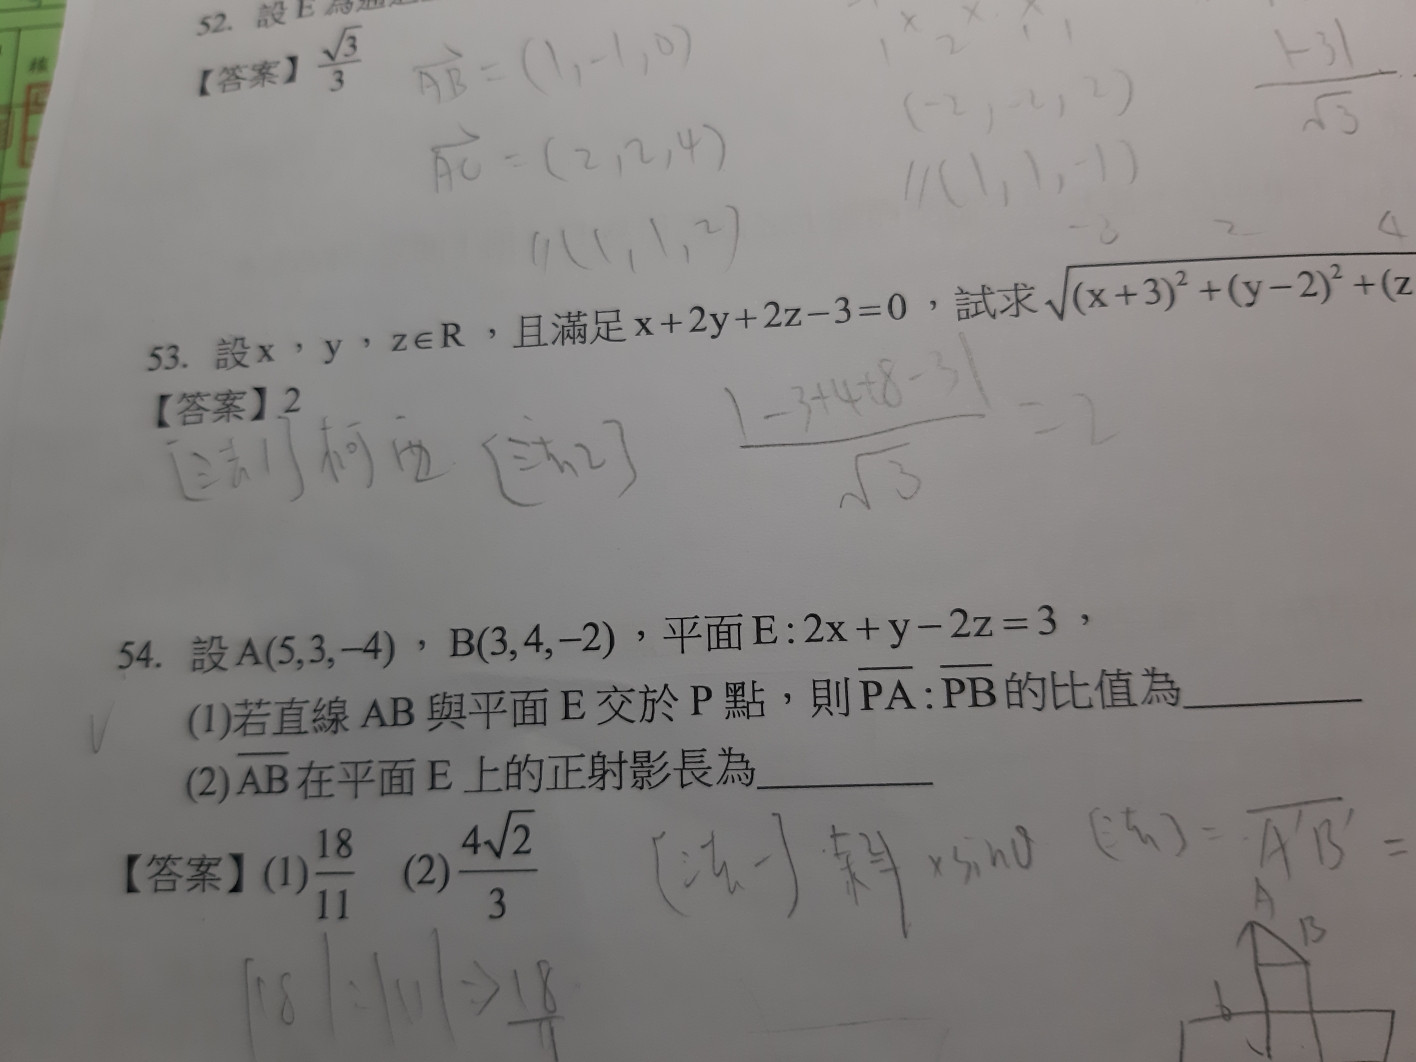 52. 設 E 為通過
【答案】√3/3
AB = (1, -1, 0)
AC = (2, 2, 4)
//(1, 1, 2)
(-2, -2, 2)
//(1, 1, -1)
|-3|/√3
-3 2 4
53. 設x，y，z∈R，且滿足x+2y+2z-3=0，試求√(x+3)²+(y-2)²+(z
【答案】2
[法1] 柯西 [法2] |-3+4+8-3|/√3 = 2
54. 設A(5,3,-4)，B(3,4,-2)，平面E:2x+y-2z=3，
(1)若直線 AB 與平面 E 交於 P 點，則PA:PB的比值為
(2)AB在平面 E 上的正射影長為
【答案】(1)18/11 (2)4√2/3
[法一] 斜 × sinθ [法] = A'B' =
|18|:|11| ⇒ 18/11
A
B